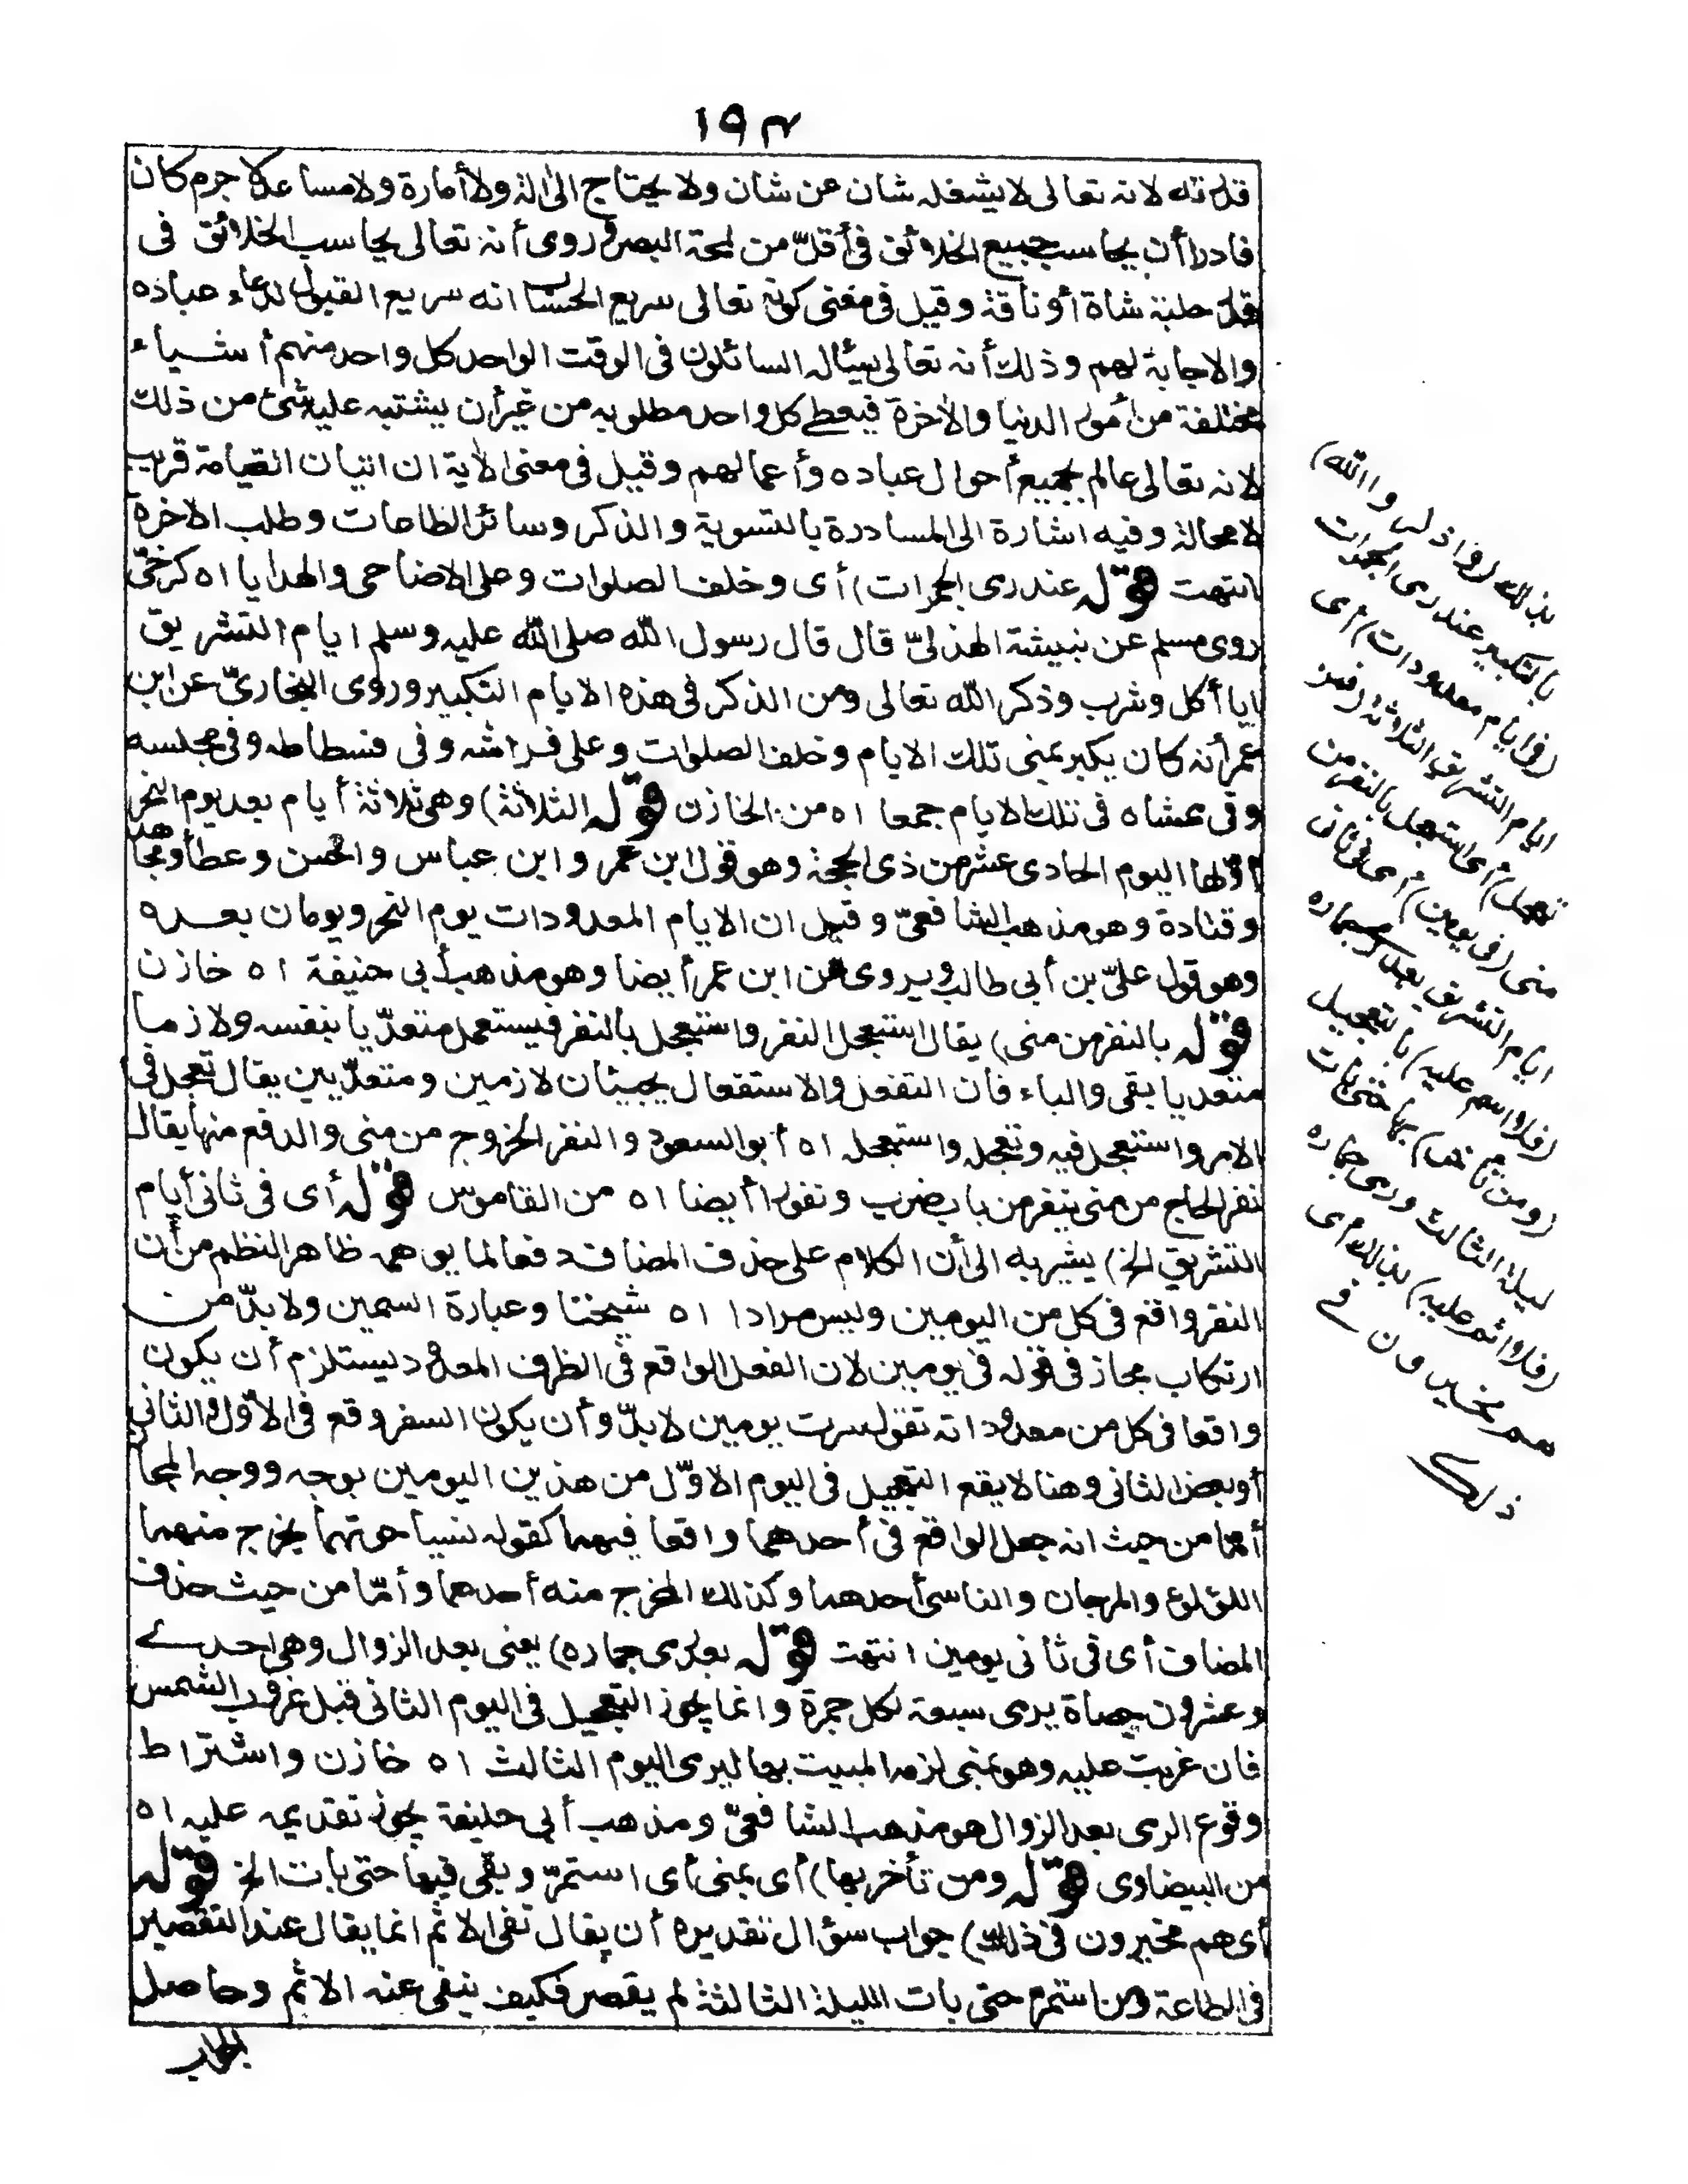 ١٩٣
قدرته لانه تعالى لا يشغله شان عن شان ولا يحتاج الى الة ولا أمارة ولا مساعد لا جرم كان
قادرا أن يحاسب جميع الخلائق فى أقلّ من لمحة البصر وروى أنه تعالى يحاسب الخلائق فى
قدر حلبة شاة أو ناقة وقيل فى معنى كونه تعالى سريع الحساب انه سريع القبول لدعاء عباده
والاجابة لهم وذلك أنه تعالى يسئاله السائلون فى الوقت الواحد كل واحد منهم أشياء
مختلفة من أمور الدنيا والآخرة فيعطى كل واحد مطلوبه من غير أن يشتبه عليه شئ من ذلك
لانه تعالى عالم بجميع أحوال عباده وأعمالهم وقيل فى معنى الآية ان اتيان القيامة قريب
لا محالة وفيه اشارة الى المسادرة بالتسوية والذكر وسائر الطاعات وطلب الآخرة
انتهت قوله عند رمى الجمرات) أى وخلف الصلوات وعلى الاضاحى والهدايا اه كرخىّ
روى مسلم عن نبيشة الهذلىّ قال قال رسول الله صلى الله عليه وسلم ايام التشريق
ايا أكل وشرب وذكر الله تعالى ومن الذكر فى هذه الايام التكبير وروى البخارىّ عن ابن
عمر أنه كان يكبر بمنى تلك الايام وخلف الصلوات وعلى فراشه وفى فسطاطه وفى مجلسه
وفى عشاه فى تلك الايام جمعا اه من الخازن قوله الثلاثة) وهى ثلاثة أيام بعد يوم النحر
أوّلها اليوم الحادى عشر من ذى الحجة وهو قول ابن عمر وابن عباس والحسن وعطأ ومجاهد
وقتادة وهو مذهب الشافعىّ وقيل ان الايام المعدودات يوم النحر ويومان بعده
وهو قول علىّ بن أبى طالب ويروى عن ابن عمر أيضا وهو مذهب أبى حنيفة اه خازن
قوله بالنفر من منى) يقال استعجل النفر واستعجل بالنفر فيستعمل متعدّيا بنفسه ولازما
متعديا بفى والباء فان التفعل والاستفعال يجيئان لازمين ومتعدّيين يقال تعجل فى
الامر واستعجل فيه وتعجله واستعجله اه أبو السعود والنفر الخروج من منى والدفع منها يقال
نفر الحاج من منى ينفر من باب ضرب ونفورا أيضا اه من القاموس قوله أى فى ثانى أيام
التشريق الخ) يشير به الى أن الكلام على حذف المضاف دفعا لما يوهمه ظاهر النظم من أن
النفر واقع فى كل من اليومين وليس مرادا اه شيخنا وعبارة السمين ولا بدّ من
ارتكاب مجاز فى قوله فى يومين لان الفعل الواقع فى الظرف المعدود ليستلزم أن يكون
واقعا فى كل من معدوداته تقول سرت يومين لا بدّ وأن يكون السفر وقع فى الاوّل والثانى
أو بعض الثانى وهنا لا يقع التعجيل فى اليوم الاوّل من هذين اليومين بوجه ووجه المجاز
أما من حيث انه جعل الواقع فى أحدهما واقعا فيهما كقوله نسيا حوتهما يخرج منهما
اللؤلؤ والمرجان والناسى أحدهما وكذلك المخرج منه أحدهما وأمّا من حيث حذف
المضاف أى فى ثانى يومين انتهت قوله بعد رمى جماره) يعنى بعد الزوال وهى احدى
وعشرون حصاة يرمى سبعة لكل جمرة وانما يجوز التعجيل فى اليوم الثانى قبل غروب الشمس
فان غربت عليه وهو بمنى لزمه المبيت بها ليرمى اليوم الثالث اه خازن واشتراط
وقوع الرمى بعد الزوال هو مذهب الشافعىّ ومذهب أبى حنيفة يجوز تقديمه عليه اه
من البيضاوى قوله ومن تأخر بها) أى بمنى أى استمرّ وبقى فيها حتى بات الخ قوله
أى هم مخيرون فى ذلك) جواب سؤال تقديره أن يقال نفى الاثم انما يقال عند التقصير
فى الطاعة ومن استمر حتى بات الليلة الثالثة لم يقصر فكيف ينفى عنه الاثم وحاصل
الجواب
بذلك (واذكروا الله)
بالتكبير عند رمى الجمرات
(فى ايام معدودات) أى
ايام التشريق الثلاثة (فمن
تعجل) أى استعجل بالنفر من
منى (فى يومين) أى فى ثانى
ايام التشريق بعد رمى جماره
(فلا اثم عليه) بالتعجيل
(ومن تأخر) بها حتى بات
ليلة الثالث ورمى جماره
(فلا اثم عليه) بذلك أى
هم مخيرون فى
ذلك